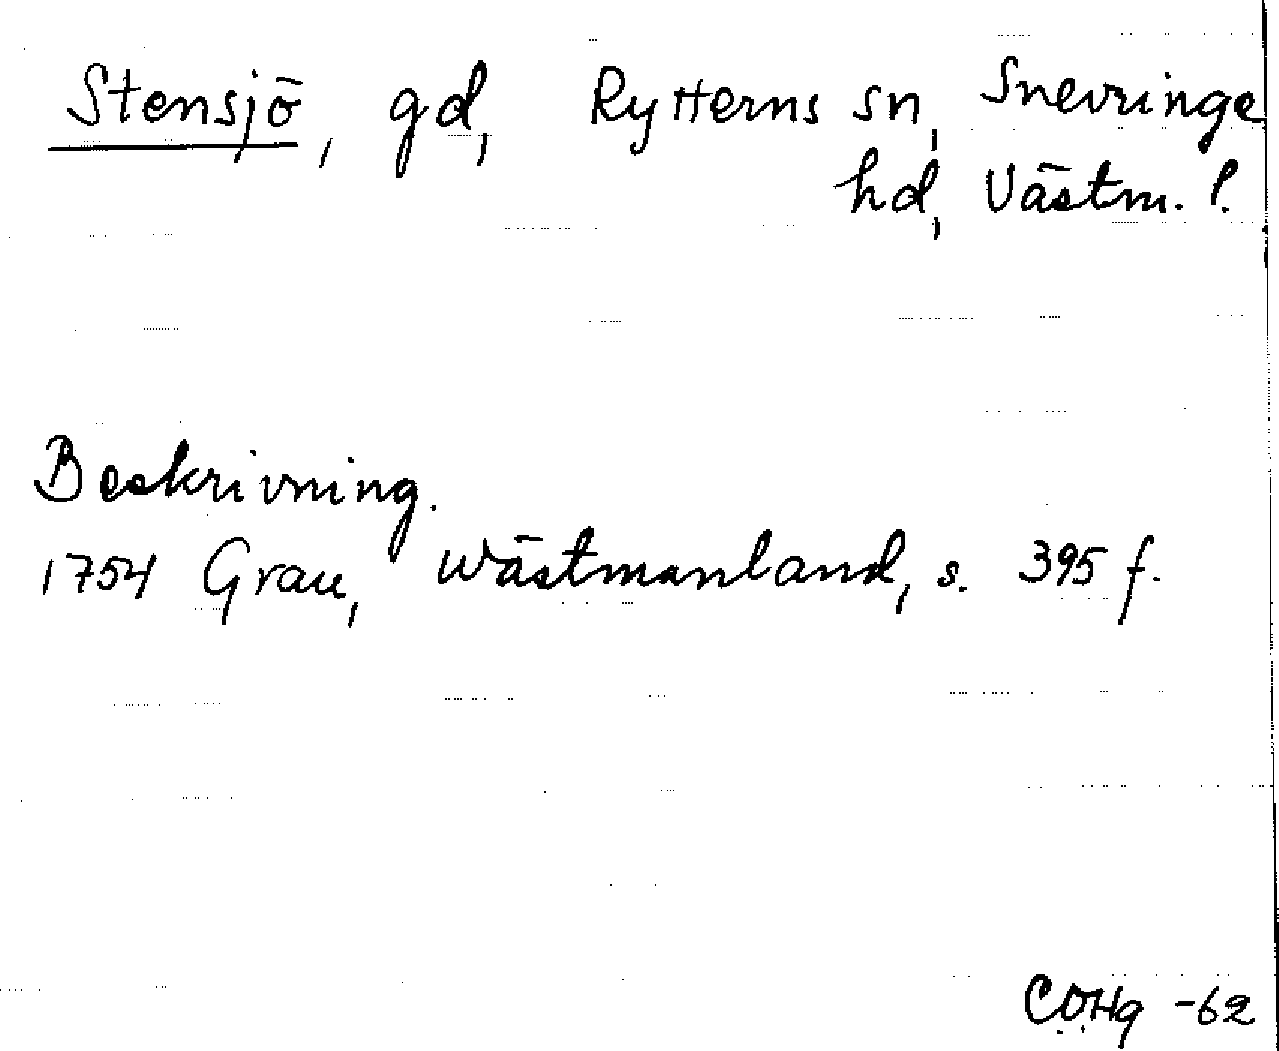 Stensjö, gd, Rytterns sn, Snevringe
hd, Västm. l.
Beskrivning.
1754 Grau, Wästmanland, s. 395 f.
COHg -62